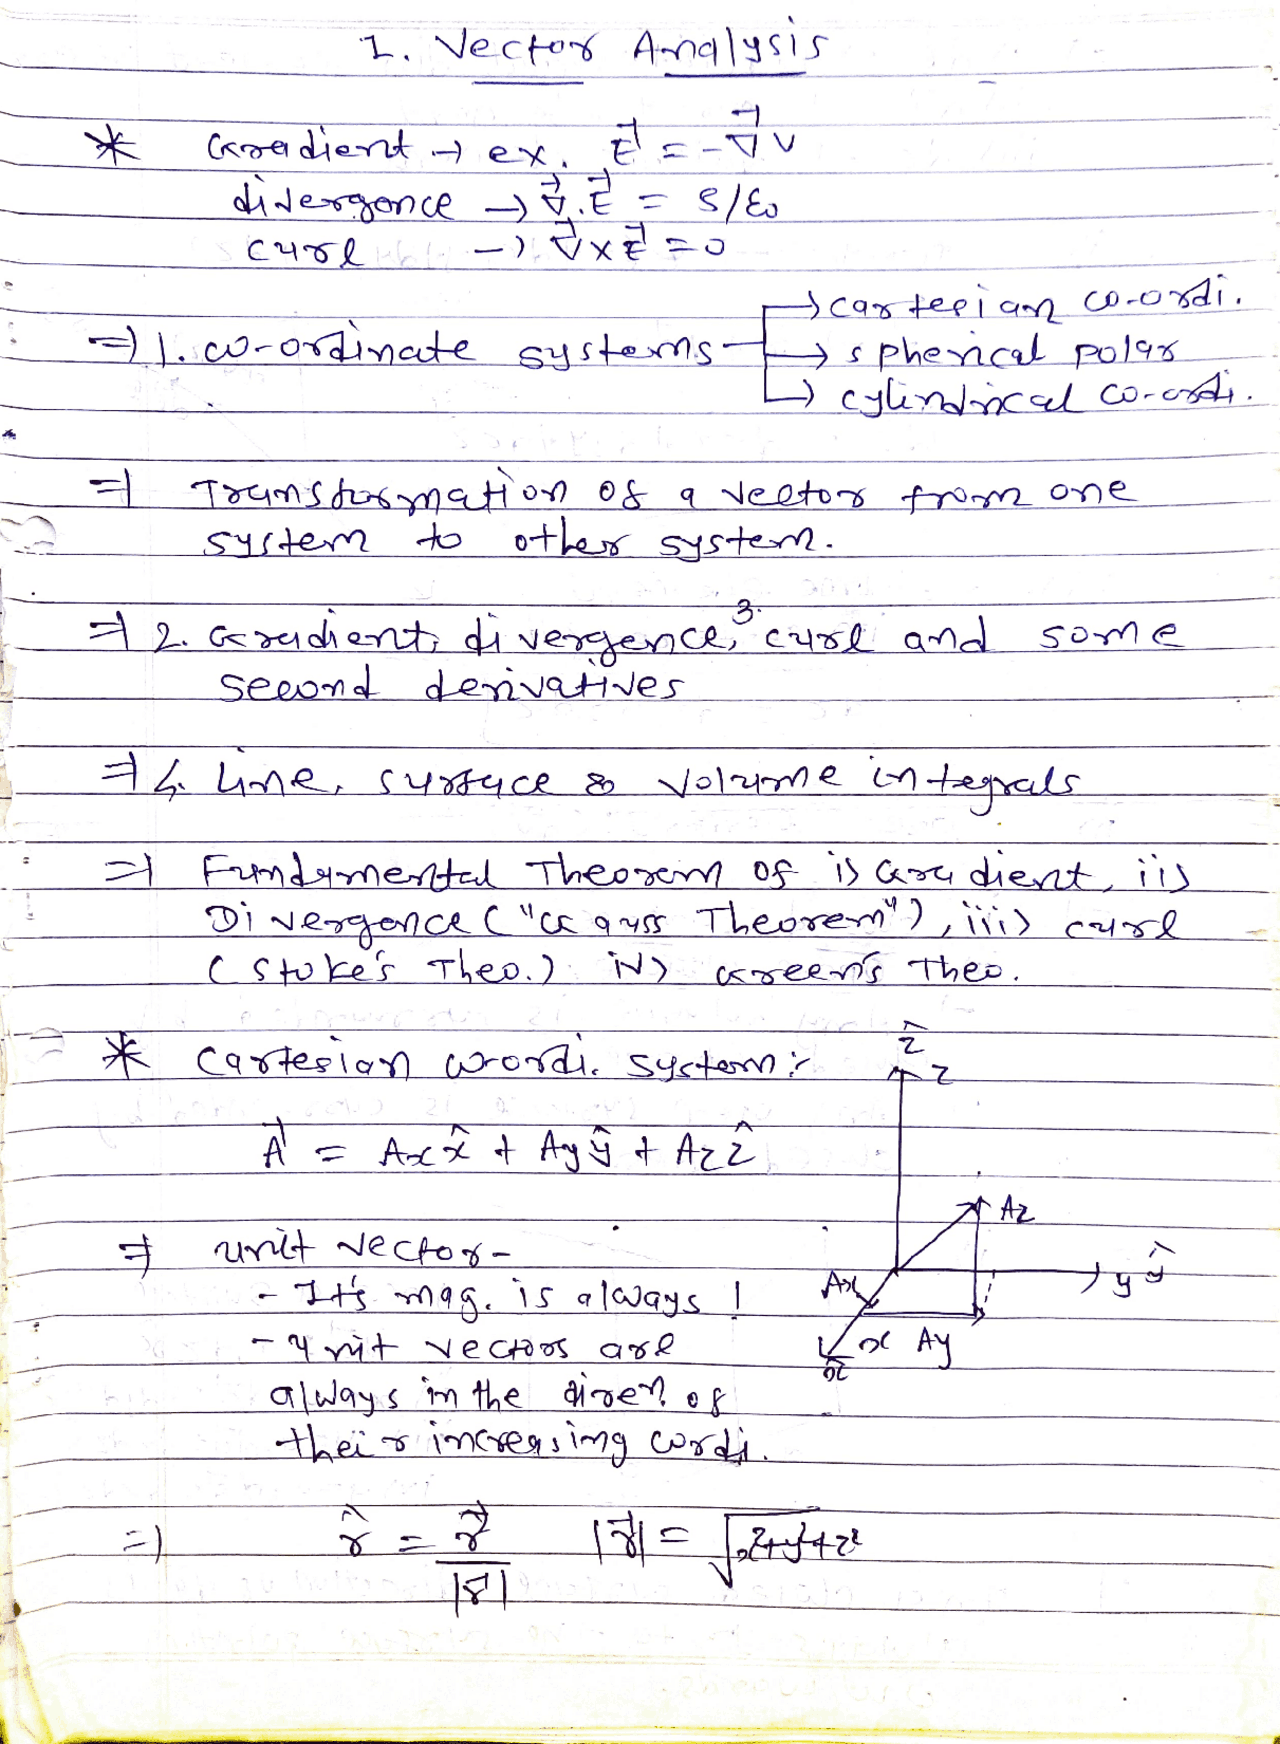 1. Vector Analysis
* Gradient → ex. E⃗ = -∇⃗V
divergence → ∇⃗.E⃗ = ρ/ε₀
curl → ∇⃗×E⃗ = 0
→ cartesian co-ordi.
⇒ 1. co-ordinate systems → spherical polar
→ cylindrical co-ordi.
⇒ Transformation of a vector from one
system to other system.
3.
⇒ 2. Gradient, divergence, curl and some
second derivatives
⇒ 4. Line, surface & volume integrals
⇒ Fundamental Theorem of i) Gradient, ii)
Divergence ("Gauss Theorem"), iii) curl
(Stoke's Theo.) iv) Green's Theo.
* Cartesian coordi. system:
ẑ
z
A⃗ = Ax x̂ + Ay ŷ + Az ẑ
Az
⇒ unit vector-
y ŷ
- It's mag. is always 1
Ax
- unit vectors are
x Ay
x̂
always in the diren. of
their increasing cordi.
⇒ r̂ = r⃗ / |r⃗| |r⃗| = √x²+y²+z²